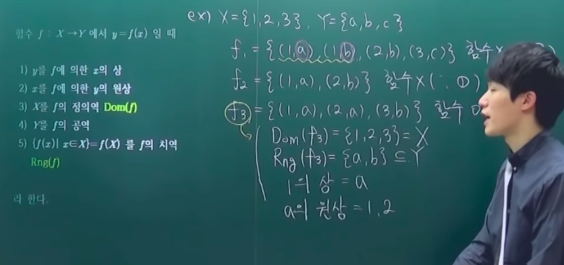 함수 f : X → Y 에서 y = f(x) 일 때
1) y를 f에 의한 x의 상
2) x를 f에 의한 y의 원상
3) X를 f의 정의역 Dom(f)
4) Y를 f의 공역
5) {f(x) | x∈X} = f(X) 를 f의 치역
Rng(f)
라 한다.
ex) X = {1, 2, 3}, Y = {a, b, c}
f₁ = {(1, a), (1, b), (2, b), (3, c)} 함수 X
f₂ = {(1, a), (2, b)} 함수 X (∵ ①)
f₃ = {(1, a), (2, a), (3, b)} 함수 O
Dom(f₃) = {1, 2, 3} = X
Rng(f₃) = {a, b} ⊆ Y
1의 상 = a
a의 원상 = 1, 2